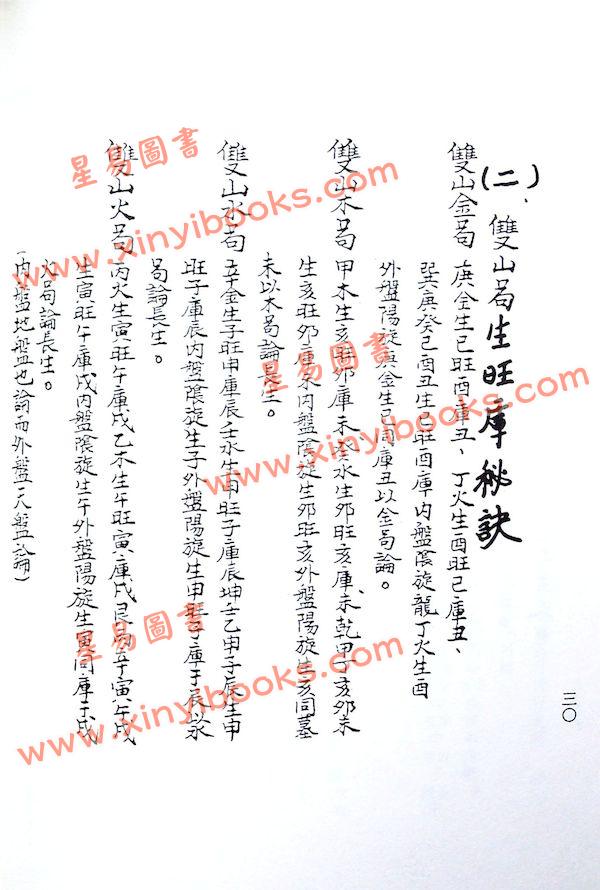 (二)、雙山局生旺庫秘訣
雙山金局 庚金生巳旺酉庫丑、丁火生酉旺巳庫丑、
巽庚癸巳酉丑生巳旺酉庫內盤陰旋龍丁火生酉
外盤陽旋庚金生巳同庫丑以金局論。
雙山木局 甲木生亥旺卯庫未癸水生卯旺亥庫未乾甲丁亥卯未
生亥旺卯庫未內盤陰旋生卯旺亥外盤陽旋生亥同墓
未以木局論長生。
雙山水局 辛金生子旺申庫辰壬水生申旺子庫辰坤壬乙申子辰生申
旺子庫辰內盤陰旋生子外盤陽旋生申旺子庫于辰以水
局論長生。
雙山火局 丙火生寅旺午庫戌乙木生午旺寅庫戌艮丙辛寅午戌
生寅旺午庫戌內盤陰旋生午外盤陽旋生寅同庫于戌
火局論長生。
(內盤地盤也論而外盤天盤論)
三〇
星易圖書
www.xinyibooks.com
星易圖書
www.xinyibooks.com
星易圖書
www.xinyibooks.com